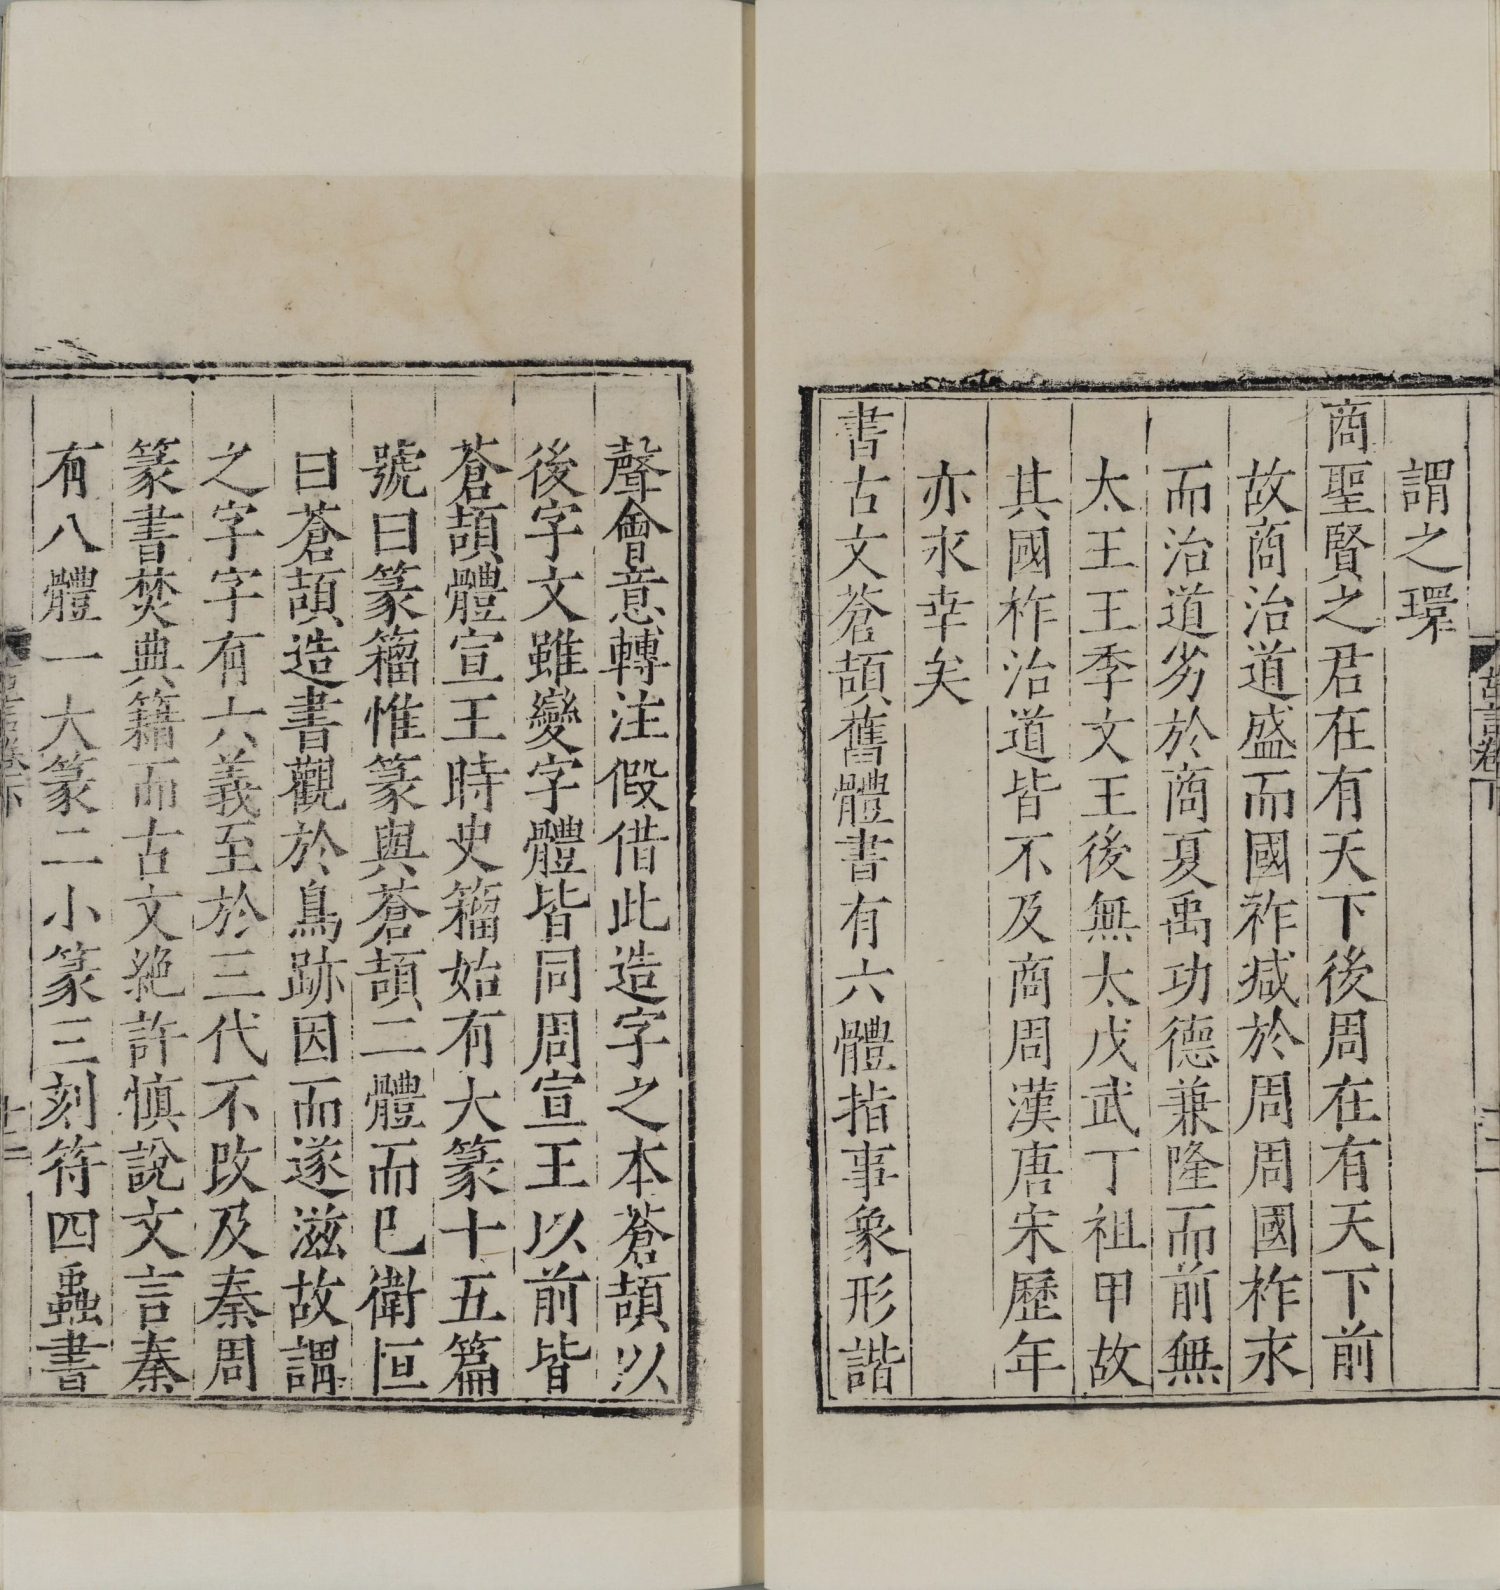 謂之環
商聖賢之君在有天下後周在有天下前
故商治道盛而國祚减於周周國祚永
而治道劣於商夏禹功德兼隆而前無
太王王季文王後無太戊武丁祖甲故
其國祚治道皆不及商周漢唐宋歷年
亦永幸矣
書古文蒼頡舊體書有六體指事象形諧
聲會意轉注假借此造字之本蒼頡以
後字文雖變字體皆同周宣王以前皆
蒼頡體宣王時史籀始有大篆十五篇
號曰篆籀惟篆與蒼頡二體而已衛恒
曰蒼頡造書觀於鳥跡因而遂滋故謂
之字字有六義至於三代不改及秦周
篆書焚典籍而古文絶許慎說文言秦
有八體一大篆二小篆三刻符四蟲書